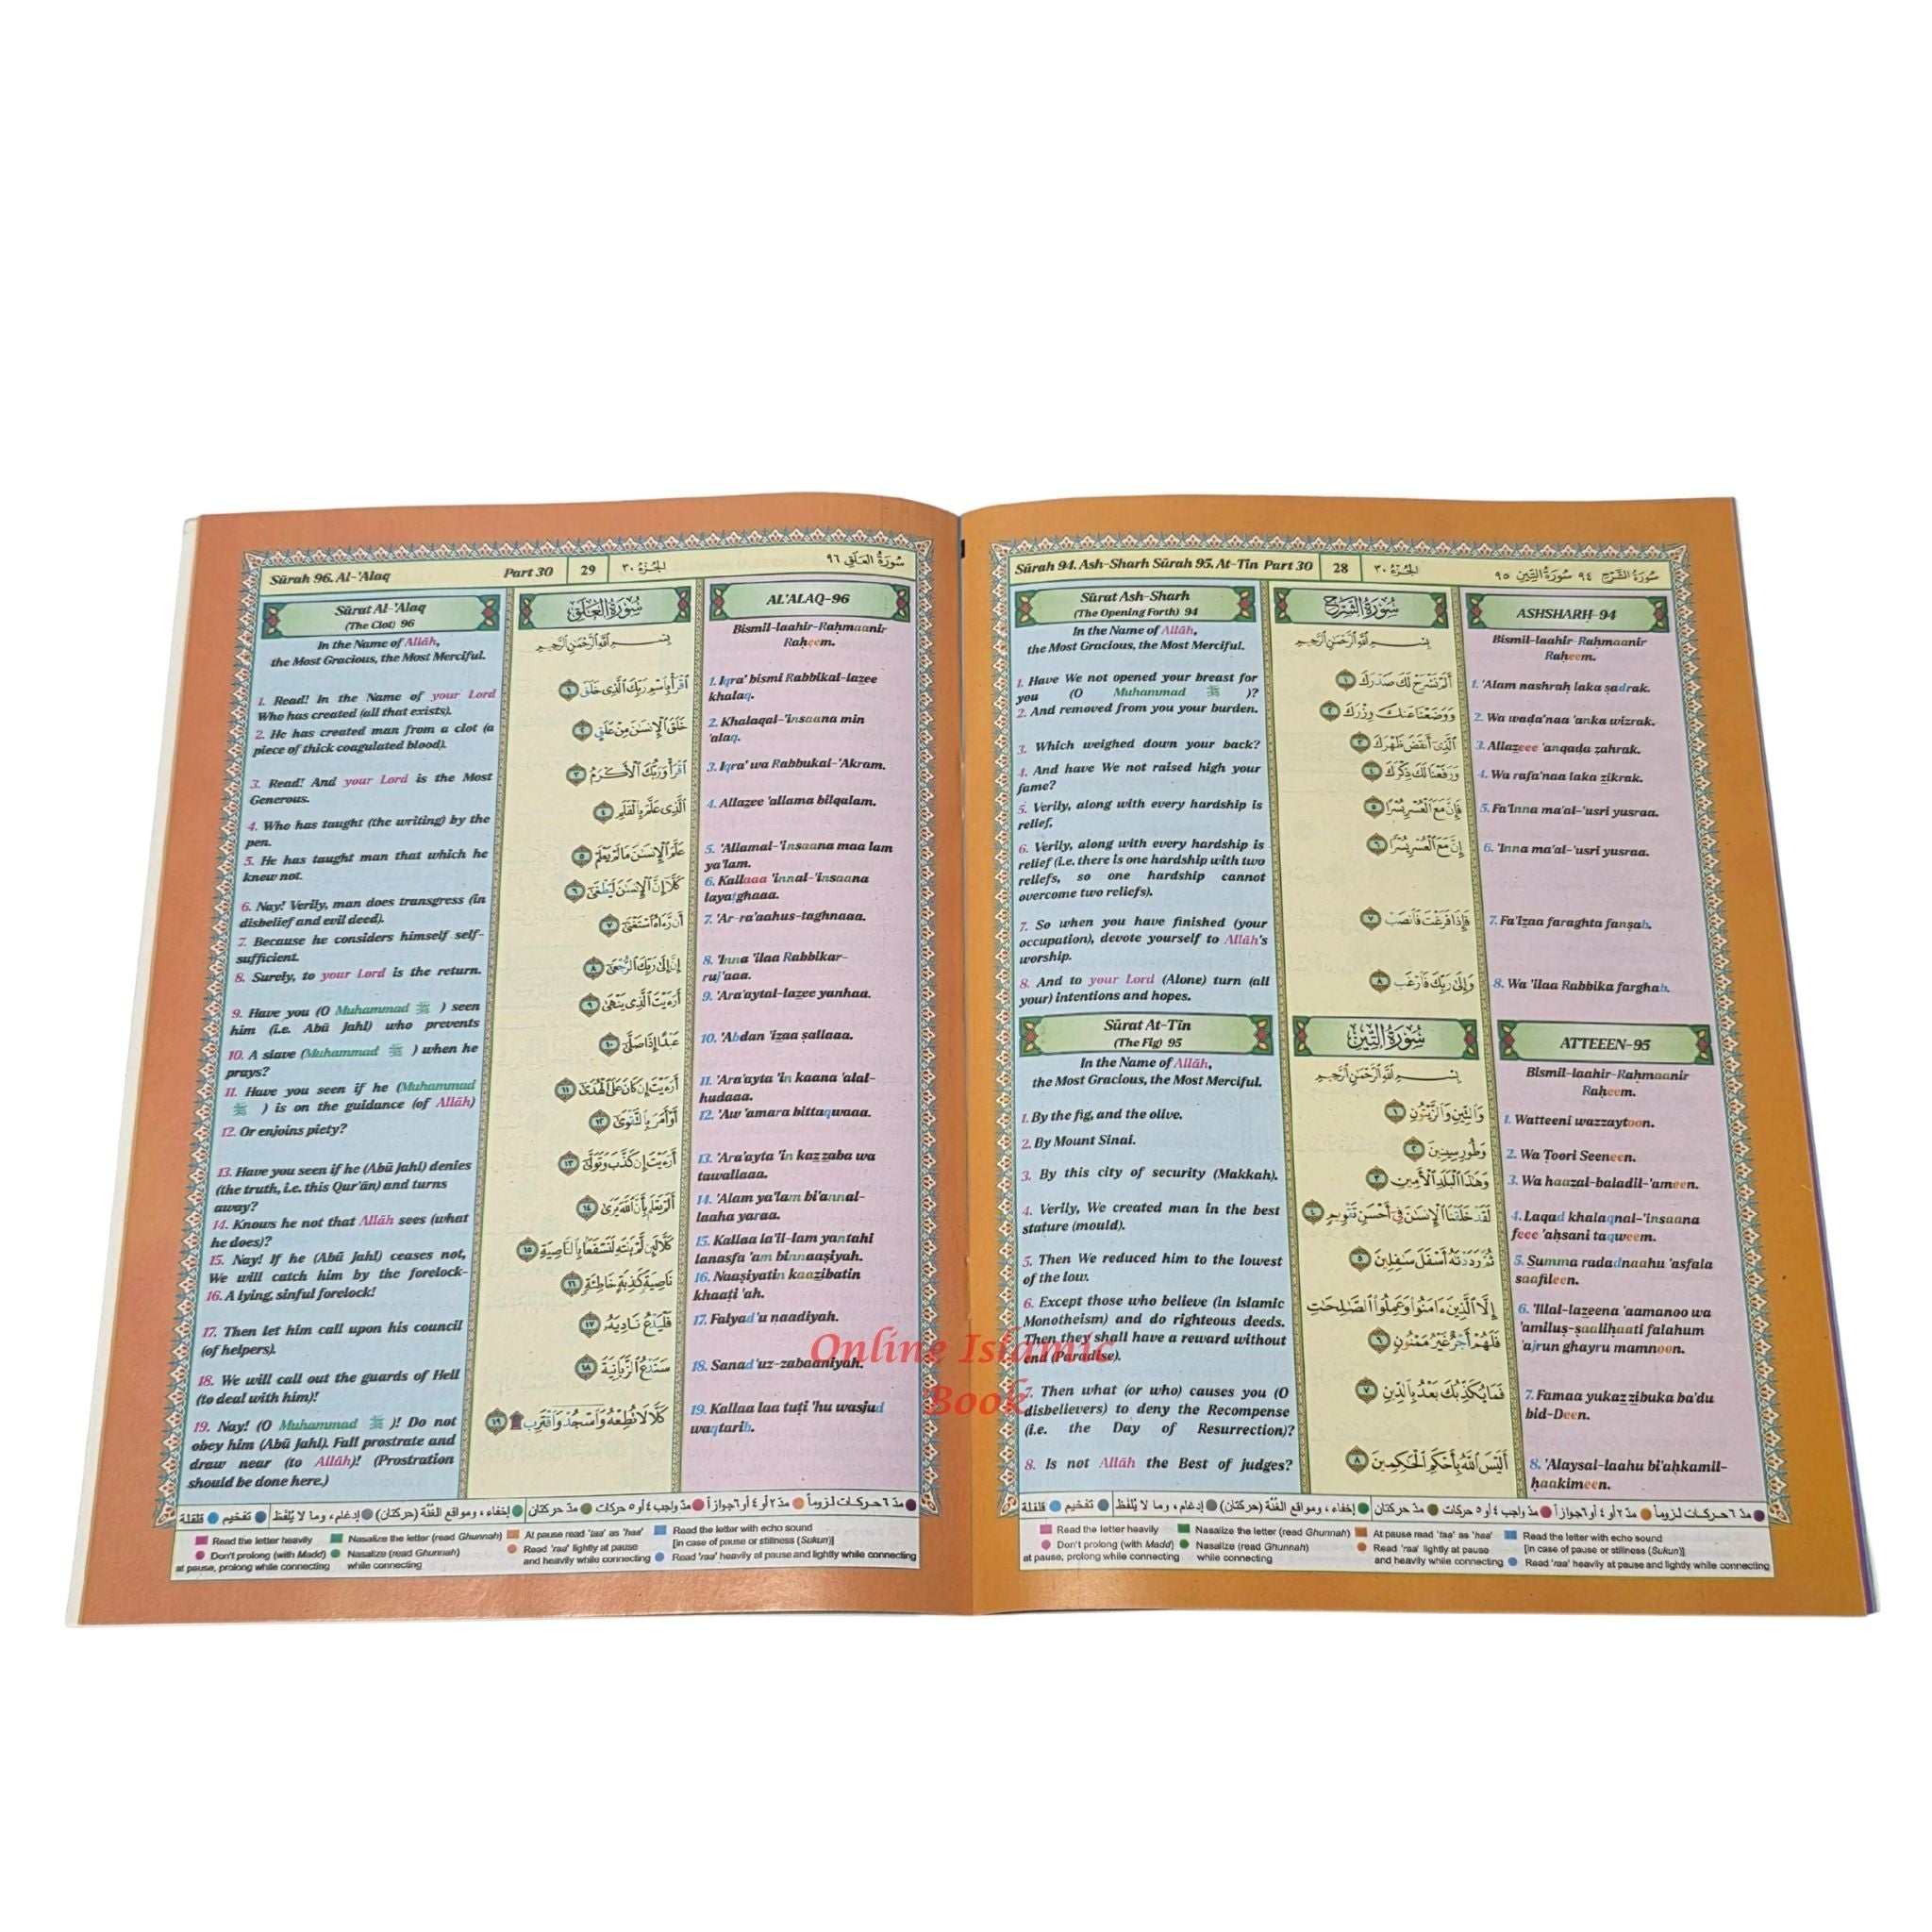 Sūrah 96. Al-'Alaq
Part 30
29
الجزء ٣٠
سورة العلق ٩٦
Sūrat Al-'Alaq
(The Clot) 96
In the Name of Allâh,
the Most Gracious, the Most Merciful.
1. Read! In the Name of your Lord
Who has created (all that exists).
2. He has created man from a clot (a
piece of thick coagulated blood).
3. Read! And your Lord is the Most
Generous.
4. Who has taught (the writing) by the
pen.
5. He has taught man that which he
knew not.
6. Nay! Verily, man does transgress (in
disbelief and evil deed).
7. Because he considers himself self-
sufficient.
8. Surely, to your Lord is the return.
9. Have you (O Muhammad ﷺ ) seen
him (i.e. Abū Jahl) who prevents
10. A slave (Muhammad ﷺ ) when he
prays?
11. Have you seen if he (Muhammad
ﷺ ) is on the guidance (of Allâh)
12. Or enjoins piety?
13. Have you seen if he (Abū Jahl) denies
(the truth, i.e. this Qur'ân) and turns
away?
14. Knows he not that Allâh sees (what
he does)?
15. Nay! If he (Abū Jahl) ceases not,
We will catch him by the forelock-
16. A lying, sinful forelock!
17. Then let him call upon his council
(of helpers).
18. We will call out the guards of Hell
(to deal with him)!
19. Nay! (O Muhammad ﷺ )! Do not
obey him (Abū Jahl). Fall prostrate and
draw near (to Allâh)! (Prostration
should be done here.)
سورة العلق
بسم الله الرحمن الرحيم
اقرأ باسم ربك الذي خلق ١
خلق الإنسان من علق ٢
اقرأ وربك الأكرم ٣
الذي علم بالقلم ٤
علم الإنسان ما لم يعلم ٥
كلا إن الإنسان ليطغى ٦
أن رآه استغنى ٧
إن إلى ربك الرجعى ٨
أرأيت الذي ينهى ٩
عبدا إذا صلى ١٠
أرأيت إن كان على الهدى ١١
أو أمر بالتقوى ١٢
أرأيت إن كذب وتولى ١٣
ألم يعلم بأن الله يرى ١٤
كلا لئن لم ينته لنسفعا بالناصية ١٥
ناصية كاذبة خاطئة ١٦
فليدع ناديه ١٧
سندع الزبانية ١٨
كلا لا تطعه واسجد واقترب ۩ ١٩
AL'ALAQ-96
Bismil-laahir-Raḥmaanir
Raḥeem.
1. Iqra' bismi Rabbikal-lazee
khalaq.
2. Khalaqal-'insaana min
'alaq.
3. Iqra' wa Rabbukal-'Akram.
4. Allazee 'allama bilqalam.
5. 'Allamal-'insaana maa lam
ya'lam.
6. Kallaaa 'innal-'insaana
layaṭghaaa.
7. 'Ar-ra'aahus-taghnaaa.
8. 'Inna 'ilaa Rabbikar-
ruj'aaa.
9. 'Ara'aytal-lazee yanhaa.
10. 'Abdan 'izaa ṣallaaa.
11. 'Ara'ayta 'in kaana 'alal-
hudaaa.
12. 'Aw 'amara bittaqwaaa.
13. 'Ara'ayta 'in kazzaba wa
tawallaaa.
14. 'Alam ya'lam bi'annal-
laaha yaraa.
15. Kallaa la'il-lam yantahi
lanasfa 'am binnaaṣiyah.
16. Naaṣiyatin kaazibatin
khaaṭi 'ah.
17. Falyad'u naadiyah.
18. Sanad'uz-zabaaniyah.
19. Kallaa laa tuṭi 'hu wasjud
waqtarib.
مدّ ٦ حركات لزوماً مدّ ٢ أو ٤ أو ٦ جوازاً مدّ واجب ٤ أو ٥ حركات مدّ حركتان إخفاء، ومواقع الغُنَّة (حركتان) إدغام، وما لا يُلفَظ تفخيم قلقلة
Read the letter heavily
Nasalize the letter (read Ghunnah)
At pause read 'taa' as 'haa'
Read the letter with echo sound
[in case of pause or stillness (Sukun)]
Don't prolong (with Madd)
at pause, prolong while connecting
Nasalize (read Ghunnah)
while connecting
Read 'raa' lightly at pause
and heavily while connecting
Read 'raa' heavily at pause and lightly while connecting
Sūrah 94. Ash-Sharh Sūrah 95. At-Tîn Part 30
28
الجزء ٣٠
سورة الشرح ٩٤ سورة التين ٩٥
Sūrat Ash-Sharh
(The Opening Forth) 94
In the Name of Allâh,
the Most Gracious, the Most Merciful.
1. Have We not opened your breast for
you (O Muhammad ﷺ )?
2. And removed from you your burden.
3. Which weighed down your back?
4. And have We not raised high your
fame?
5. Verily, along with every hardship is
relief,
6. Verily, along with every hardship is
relief (i.e. there is one hardship with two
reliefs, so one hardship cannot
overcome two reliefs).
7. So when you have finished (your
occupation), devote yourself to Allâh's
worship.
8. And to your Lord (Alone) turn (all
your) intentions and hopes.
سورة الشرح
بسم الله الرحمن الرحيم
ألم نشرح لك صدرك ١
ووضعنا عنك وزرك ٢
الذي أنقض ظهرك ٣
ورفعنا لك ذكرك ٤
فإن مع العسر يسرا ٥
إن مع العسر يسرا ٦
فإذا فرغت فانصب ٧
وإلى ربك فارغب ٨
ASHSHARḤ-94
Bismil-laahir-Raḥmaanir
Raḥeem.
1. 'Alam nashraḥ laka ṣadrak.
2. Wa waḍa'naa 'anka wizrak.
3. Allazeee 'anqaḍa zahrak.
4. Wa rafa'naa laka zikrak.
5. Fa'Inna ma'al-'usri yusraa.
6. 'Inna ma'al-'usri yusraa.
7. Fa'Izaa faraghta fanṣab.
8. Wa 'ilaa Rabbika farghab.
Sūrat At-Tîn
(The Fig) 95
In the Name of Allâh,
the Most Gracious, the Most Merciful.
1. By the fig, and the olive.
2. By Mount Sinai.
3. By this city of security (Makkah).
4. Verily, We created man in the best
stature (mould).
5. Then We reduced him to the lowest
of the low.
6. Except those who believe (in Islamic
Monotheism) and do righteous deeds.
Then they shall have a reward without
end (Paradise).
7. Then what (or who) causes you (O
disbelievers) to deny the Recompense
(i.e. the Day of Resurrection)?
8. Is not Allâh the Best of judges?
سورة التين
بسم الله الرحمن الرحيم
والتين والزيتون ١
وطور سينين ٢
وهذا البلد الأمين ٣
لقد خلقنا الإنسان في أحسن تقويم ٤
ثم رددناه أسفل سافلين ٥
إلا الذين آمنوا وعملوا الصالحات
فلهم أجر غير ممنون ٦
فما يكذبك بعد بالدين ٧
أليس الله بأحكم الحاكمين ٨
ATTEEEN-95
Bismil-laahir-Raḥmaanir
Raḥeem.
1. Watteeni wazzaytoon.
2. Wa Ṭoori Seeneen.
3. Wa haazal-baladil-'ameen.
4. Laqad khalaqnal-'insaana
feee 'aḥsani taqweem.
5. Summa radadnaahu 'asfala
saafileen.
6. 'Illal-lazeena 'aamanoo wa
'amiluṣ-ṣaaliḥaati falahum
'ajrun ghayru mamnoon.
7. Famaa yukazzibuka ba'du
bid-Deen.
8. 'Alaysal-laahu bi'aḥkamil-
ḥaakimeen.
مدّ ٦ حركات لزوماً مدّ ٢ أو ٤ أو ٦ جوازاً مدّ واجب ٤ أو ٥ حركات مدّ حركتان إخفاء، ومواقع الغُنَّة (حركتان) إدغام، وما لا يُلفَظ تفخيم قلقلة
Read the letter heavily
Nasalize the letter (read Ghunnah)
At pause read 'taa' as 'haa'
Read the letter with echo sound
[in case of pause or stillness (Sukun)]
Don't prolong (with Madd)
at pause, prolong while connecting
Nasalize (read Ghunnah)
while connecting
Read 'raa' lightly at pause
and heavily while connecting
Read 'raa' heavily at pause and lightly while connecting
Online Islamic
Book